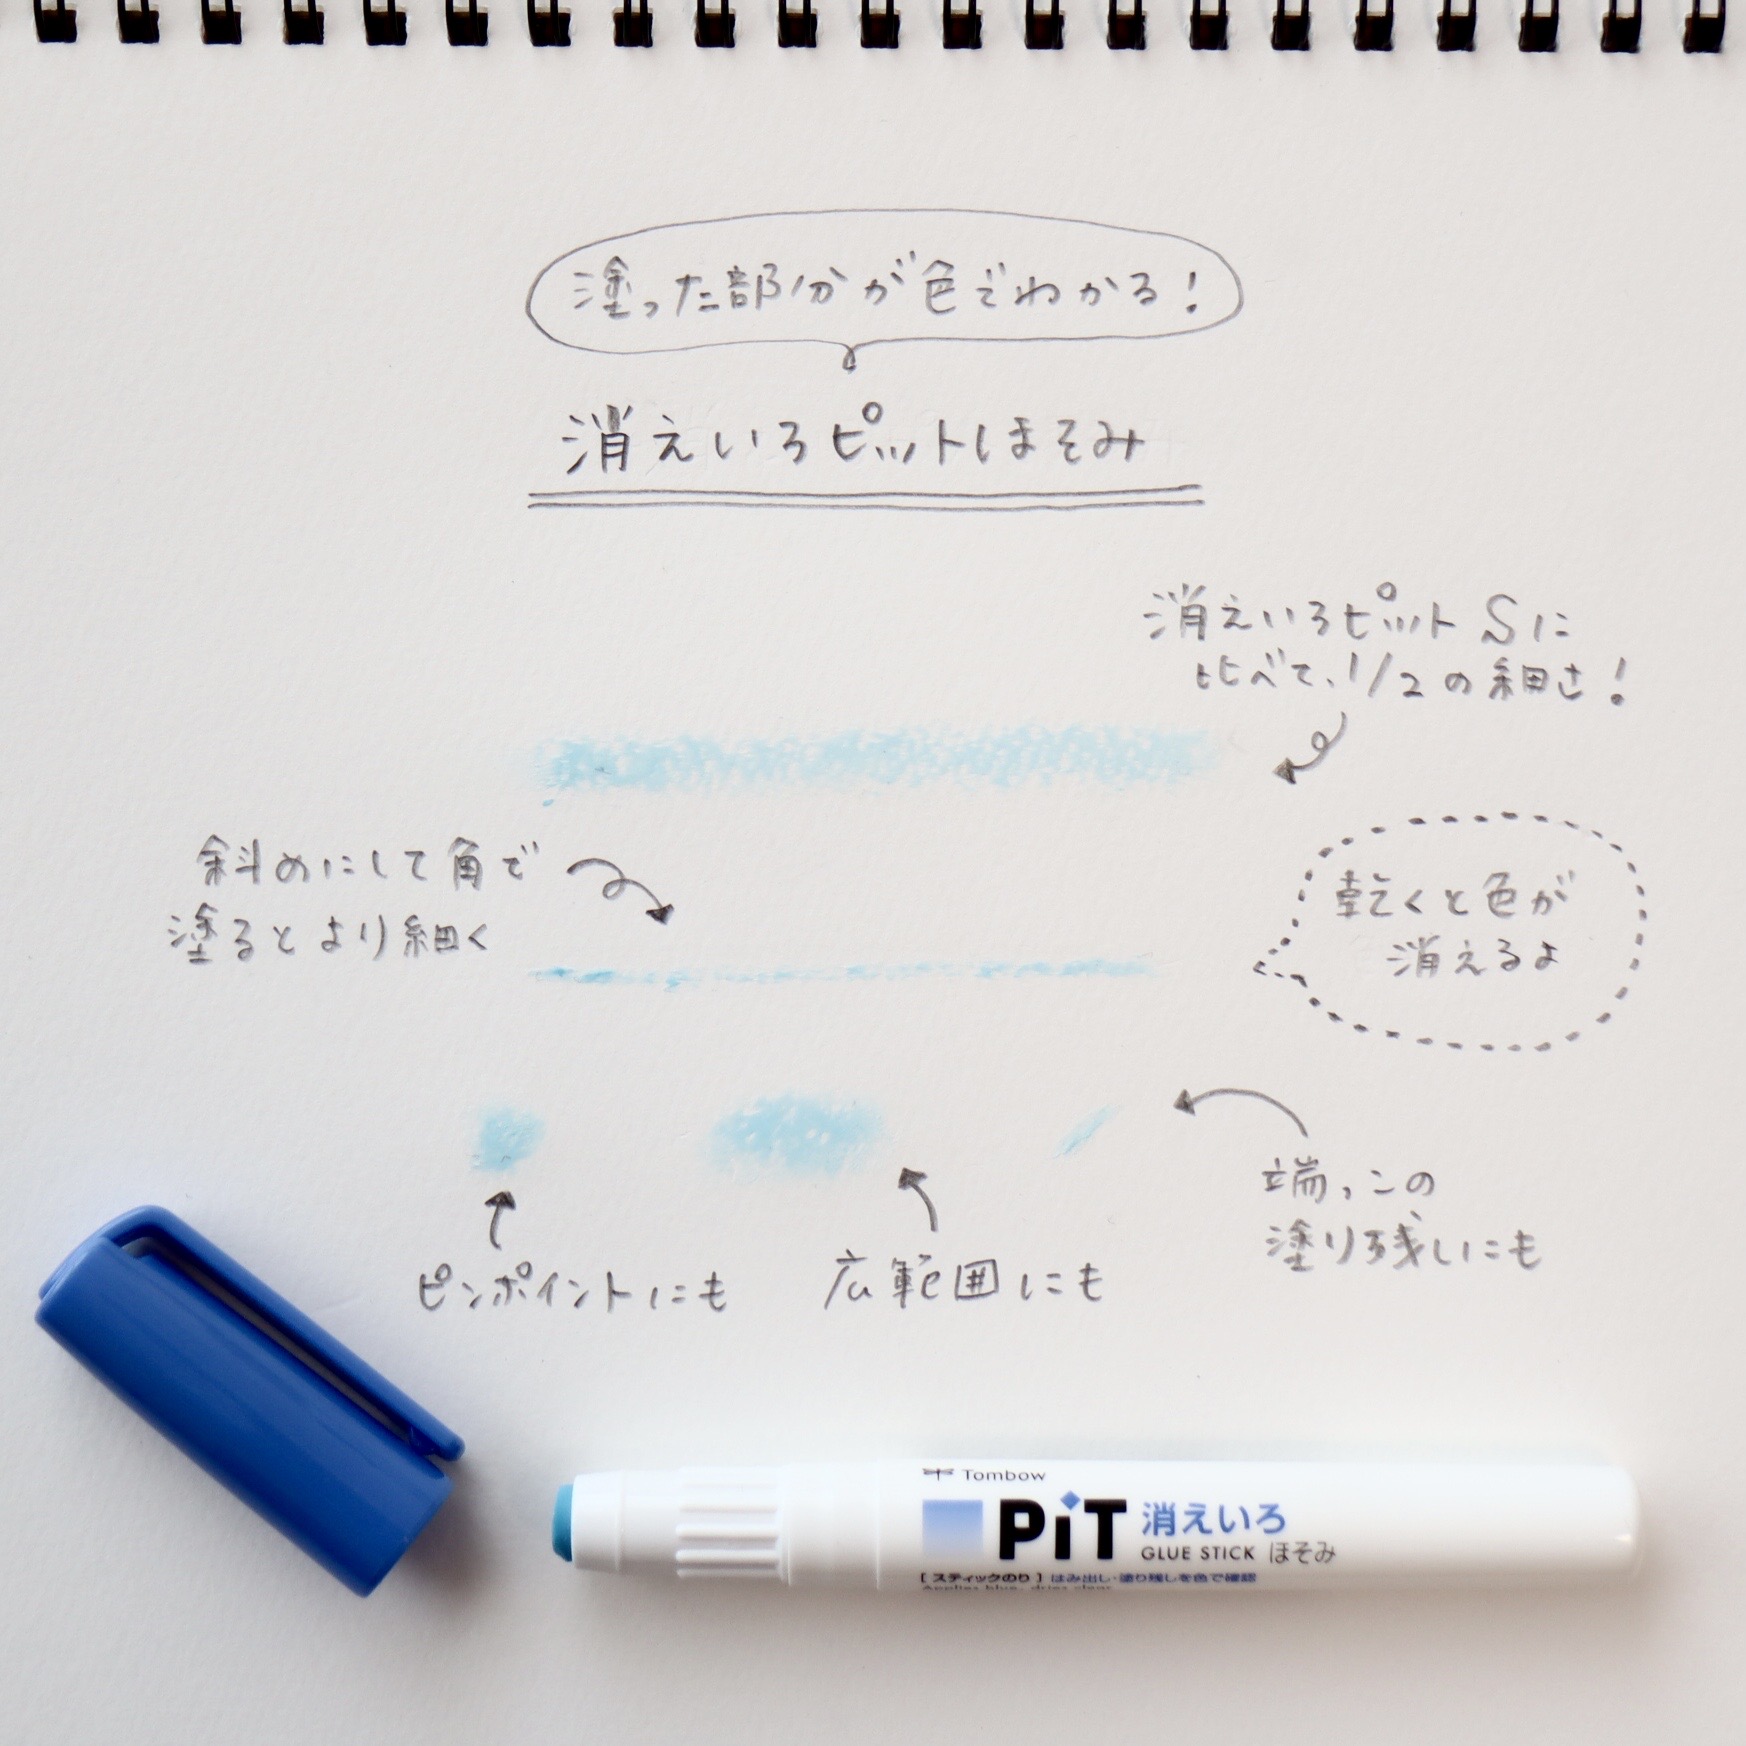 塗った部分が色でわかる！
消えいろピットほそみ
消えいろピットSに
比べて、1/2の細さ！
斜めにして角で
塗るとより細く
乾くと色が
消えるよ
ピンポイントにも
広範囲にも
端っこの
塗り残しにも
Tombow
PiT 消えいろ
GLUE STICK ほそみ
[スティックのり] はみ出し・塗り残しを色で確認
Applies blue, dries clear